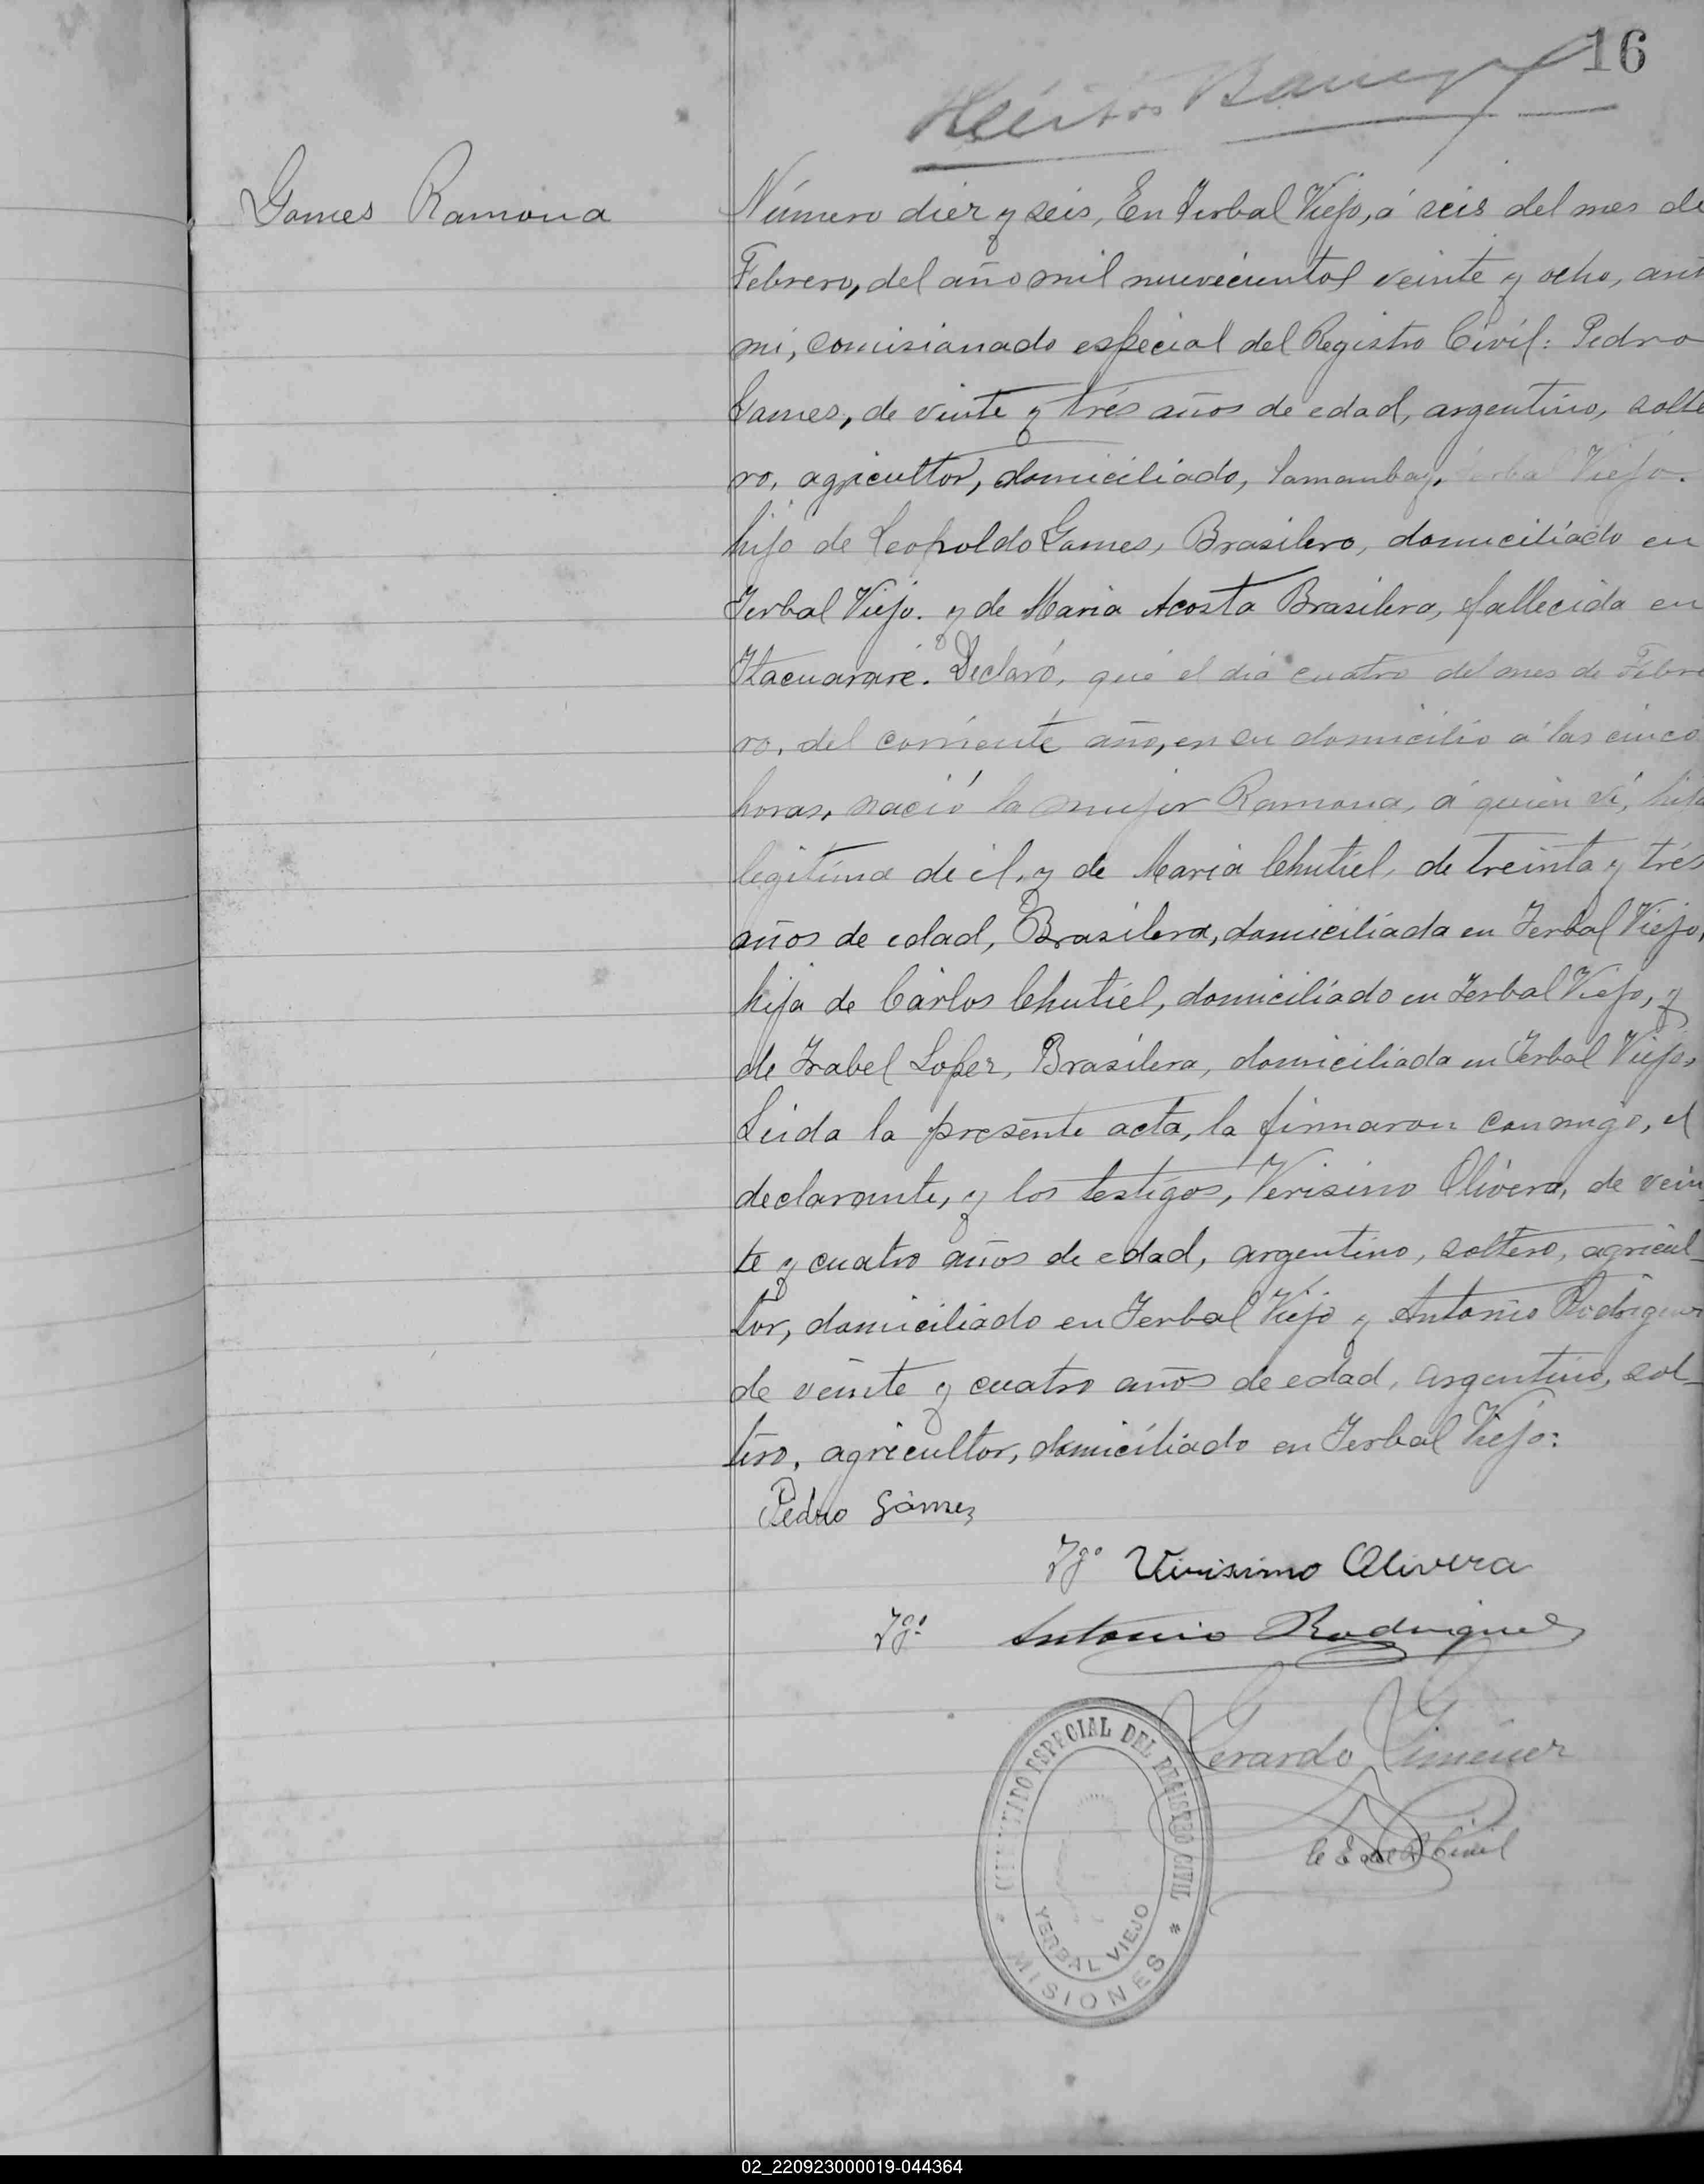 16
Games Ramona
Número diez y seis, En Yerbal Viejo, á seis del mes de
Febrero, del año mil nuevecientos veinte y ocho, ant
mi, comisianado especial del Registro Civil: Pedro
Games, de veinte y trés años de edad, argentino, solte
ro, agricultor, domiciliado, Yerbal Viejo.
hijo de Leopoldo Games, Brasilero, domiciliado en
Yerbal Viejo. y de Maria Acosta Brasilera, fallecida en
Itacuararé. Declaró, que el dia cuatro del mes de Febre
ro, del corriente año, en su domicilio a las cinco
horas, nació la mujer Ramona, á quien ví, hija
legitima de él, y de Maria Chutiel, de treinta y trés
años de edad, Brasilera, domiciliada en Yerbal Viejo,
hija de Cárlos Chutiel, domiciliado en Yerbal Viejo, y
de Izabel Lopez, Brasilera, domiciliada en Yerbal Viejo,
Leida la presente acta, la firmaron conmigo, el
declarante, y los testigos, Verisimo Olivera, de vein
te y cuatro años de edad, argentino, soltero, agricul-
tor, domiciliado en Yerbal Viejo y Antonio Rodriguez
de veinte y cuatro años de edad, argentino, sol-
tero, agricultor, domiciliado en Yerbal Viejo:
Pedro Gámez
Tgo Virisimo Olivera
Tgo Antonio Rodriguez
Gerardo Gimenez
C E del R Civil
COMISIONADO ESPECIAL DEL REGISTRO CIVIL
YERBAL VIEJO
* MISIONES *
02_220923000019-044364